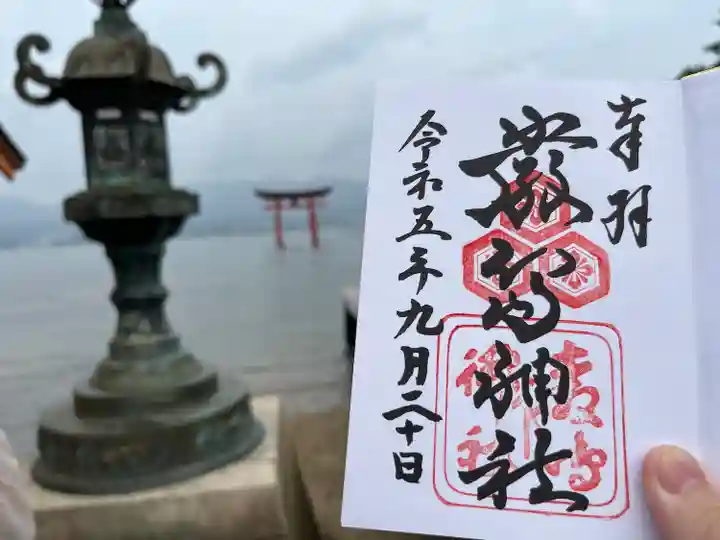 奉拝
嚴島神社
嚴島神社
令和五年九月二十日